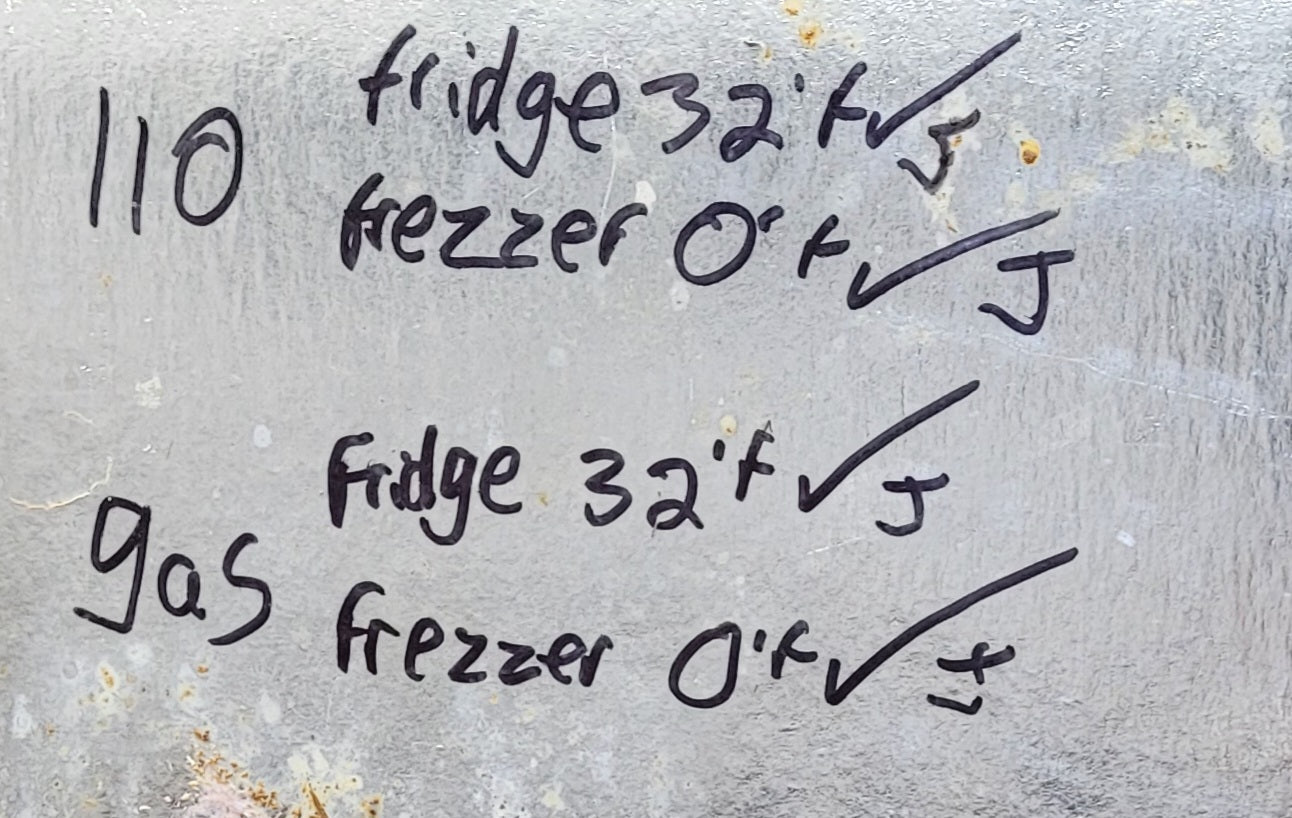 110 fridge 32°f ✓ J
frezzer 0°f ✓ J
gas fridge 32°f ✓ J
frezzer 0°f ✓